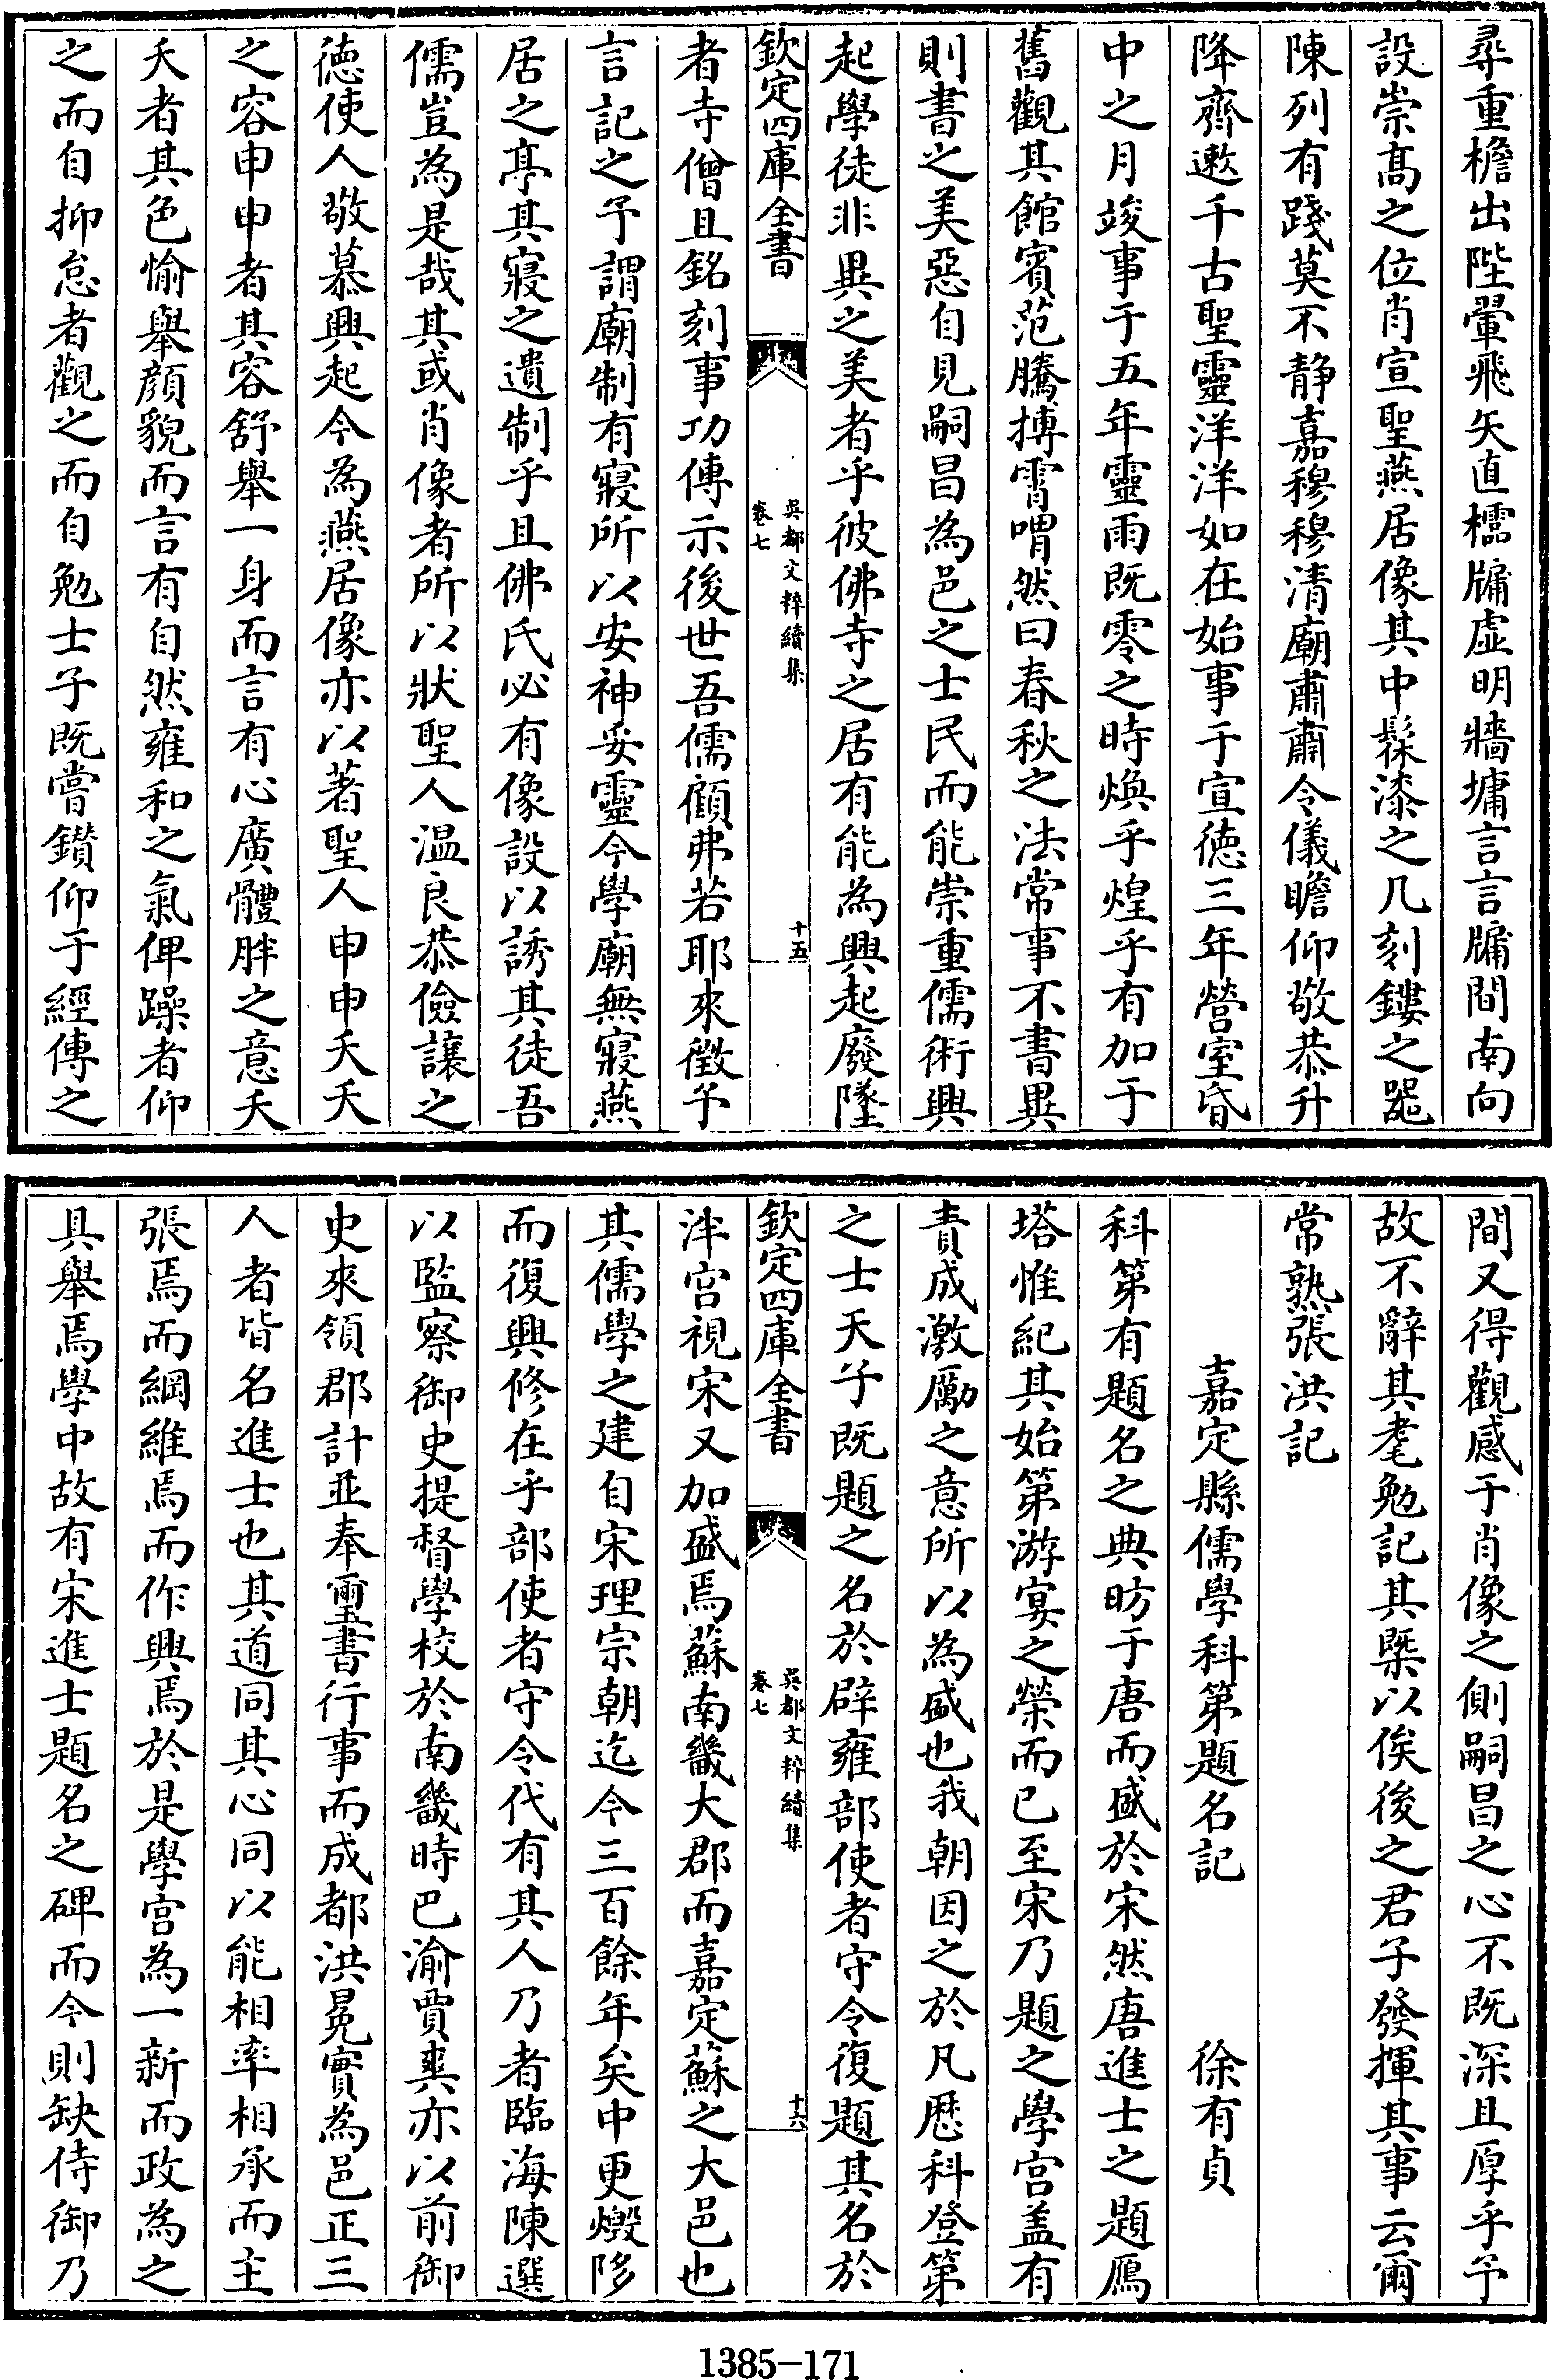 尋重檐出陛翬飛矢直櫺牖虛明牆墉言言牖間南向
設崇髙之位肖宣聖燕居像其中髹漆之几刻鏤之器
陳列有踐莫不静嘉穆穆清廟肅肅令儀瞻仰敬恭升
降齊遬千古聖靈洋洋如在始事于宣徳三年營室昏
中之月竣事于五年靈雨既零之時煥乎煌乎有加于
舊觀其館賓范騰搏霄喟然曰春秋之法常事不書異
則書之美惡自見嗣昌為邑之士民而能崇重儒術興
起學徒非異之美者乎彼佛寺之居有能為興起廢墜
欽定四庫全書
吳都文粹續集
卷七
十五
者寺僧且銘刻事功傳示後世吾儒顧弗若耶來徵予
言記之予謂廟制有寢所以安神妥靈今學廟無寢燕
居之亭其寢之遺制乎且佛氏必有像設以誘其徒吾
儒豈為是哉其或肖像者所以狀聖人温良恭儉讓之
徳使人敬慕興起今為燕居像亦以著聖人申申夭夭
之容申申者其容舒舉一身而言有心廣體胖之意夭
夭者其色愉舉顔貌而言有自然雍和之氣俾躁者仰
之而自抑怠者觀之而自勉士子既嘗鑚仰于經傳之
間又得觀感于肖像之側嗣昌之心不既深且厚乎予
故不辭其耄勉記其槩以俟後之君子發揮其事云爾
常熟張洪記
嘉定縣儒學科第題名記　徐有貞
科第有題名之典昉于唐而盛於宋然唐進士之題鴈
塔惟紀其始第游宴之榮而已至宋乃題之學宫盖有
責成激厲之意所以為盛也我朝因之於凡歴科登第
之士天子既題之名於辟雍部使者守令復題其名於
欽定四庫全書
吳都文粹續集
卷七
十六
泮宫視宋又加盛焉蘇南畿大郡而嘉定蘇之大邑也
其儒學之建自宋理宗朝迄今三百餘年矣中更燬陊
而復興修在乎部使者守令代有其人乃者臨海陳選
以監察御史提督學校於南畿時巴渝賈奭亦以前御
史來領郡計並奉璽書行事而成都洪冕實為邑正三
人者皆名進士也其道同其心同以能相率相承而主
張焉而綱維焉而作興焉於是學宫為一新而政為之
具舉焉學中故有宋進士題名之碑而今則缺侍御乃
1385-171